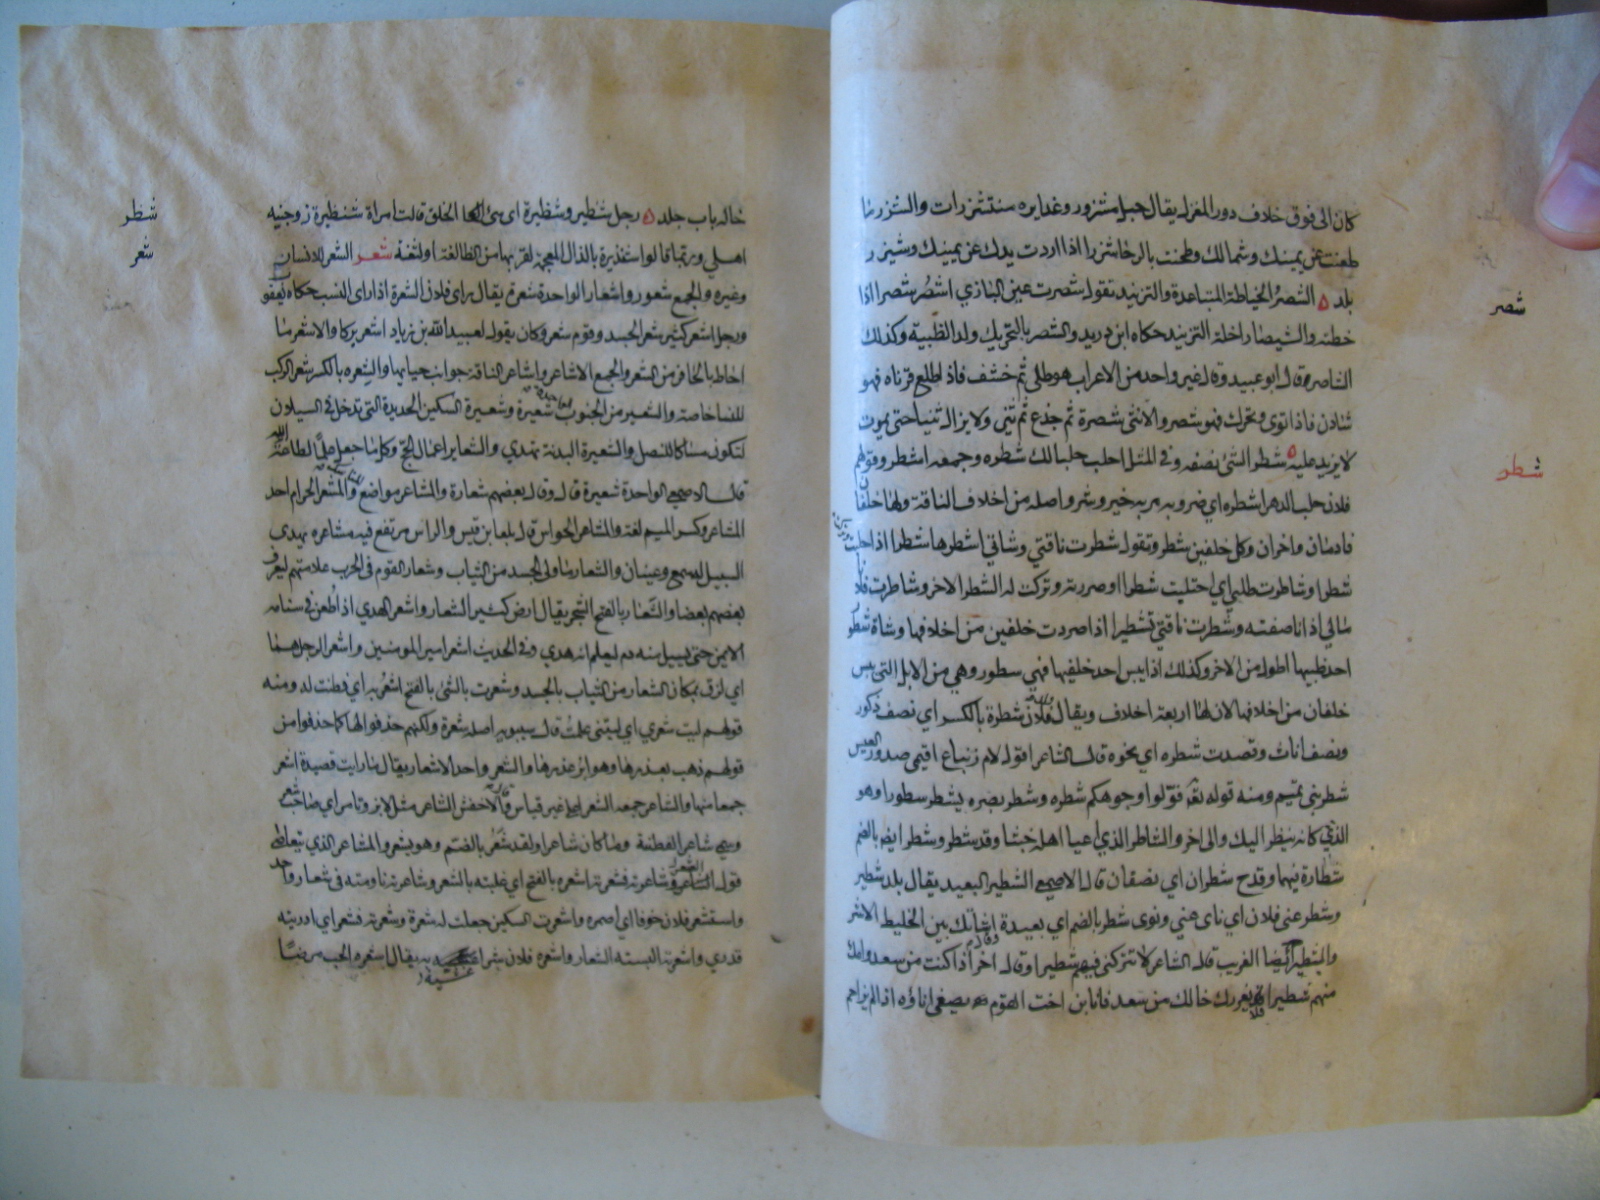 كان الى فوق خلاف دور المغزل يقال حبل مشزور وغدايره مستشزرات والشزر ما
طعنت عن يمينك وشمالك وطحنت بالرحا شزرا اذا اردت يدك عن يمينك وشيزر
بلد الشصر الخياطة المتباعدة والتزنيد تقول شصرت عين البازي اشصر شصرا اذا
شصر
خطته والشصار اخلة التزنيد حكاه ابن دريد والشصر بالتحريك ولد الظبية وكذلك
الشاصر قال ابو عبيد وقال غير واحد من الاعراب هو طلى ثم خشف فاذا طلع قرناه فهو
شادن فاذا قوى وتحرك فهو شصر والانثى شصرة ثم جذع ثم ثنى ولا يزال ثنيا حتى يموت
لا يزيد عليه شطر الشئ نصفه وفي المثل احلب حلبا لك شطره وجمعه اشطر وقولهم
شطر
فلان حلب الدهر اشطره اي ضروبه مر به خير وشر واصله من اخلاف الناقة ولها خلفان
قادمان واخران وكل خلفين شطر وتقول شطرت ناقتي وشاتي اشطرها شطرا اذا حلبت
شطرا وشاطرت طليي اي احتلبت شطرا او صررته وتركت له الشطر الاخر وشاطرت فلانا
مالي اذا ناصفته وشطرت ناقتي تشطيرا اذا صررت خلفين من اخلافها وشاة شطور
احد طبييها اطول من الاخر وكذلك اذا يبس احد خلفيها فهي سطور وهي من الابل التي يبس
خلفان من اخلافها لان لها اربعة اخلاف ويقال ولد فلان شطرة بالكسر اي نصف ذكور
ونصف اناث وقصدت شطره اي نحوه قال الشاعر اقول لام زنباع اقيمي صدور العيس
شطر بني تميم ومنه قوله تعالى فولوا وجوهكم شطره وشطر بصره يشطر سطورا وهو
الذي كانه ينظر اليك والى اخر والشاطر الذي اعيا اهله خبثا وقد شطر وشطر ايضا بالضم
شطارة فيهما وقدح شطران اي نصفان قال الاصمعي الشطير البعيد يقال بلد شطير
وشطر عني فلان اي نأى عني ونوى شطر بالضم اي بعيدة اشاقك بين الخليط الشطر
والشطير ايضا الغريب قال الشاعر لا تتركني فيهم شطيرا وقال اخر اذا كنت من سعد وامك
منهم شطيرا فلا يغررك خالك من سعد فان ابن اخت القوم مصغى اناؤه اذا لم يزاحم
خاله باب جلد رجل شظير وشظيرة اى سئ الخلق قالت امراة شنظيرة زوجنيه
شظر
اهلي وربما قالوا شنذيرة بالذال المعجمة لقربها من الظا لغة او لثغة شعر الشعر للانسان
شعر
وغيره والجمع شعور واشعار الواحدة شعرة يقال راى فلان الشعرة اذا راى الشيب حكاه يعقوب
ورجل اشعر كثير شعر الجسد وقوم شعر وكان يقال لعبيد الله بن زياد اشعر بركا والاشعر ما
احاط بالحافر من الشعر والجمع الاشاعر واشاعر الناقة جوانب حيايها والشعره بالكسر شعر الركب
للنسا خاصة والشعير من الحبوب الواحدة شعيرة وشعيرة السكين الحديدة التي تدخل في السيلان
لتكون مساكا للنصل والشعيرة البدنة تهدي والشعاير اعمال الحج وكل ما جعل علما لطاعة الله
قال الاصمعي الواحدة شعيرة قال وقال بعضهم شعارة والمشاعر مواضع المناسك والمشعر الحرام احد
المشاعر وكسر الميم لغة والمشاعر الحواس قال بلعا بن قيس والراس مرتفع فيه مشاعره يهدى
السبيل له سمع وعينان والشعار ما ولى الجسد من الثياب وشعار القوم في الحرب علامتهم ليعرف
بعضهم بعضا والشعار بالفتح الشجر يقال ارض كثير الشعار واشعر الهدي اذا طعن في سنامه
الايمن حتى يسيل منه دم ليعلم انه هدي وفي الحديث اشعر امير المومنين واشعر الرجل هما
اي لزق بمكان الشعار من الثياب بالجسد وشعرت بالشئ بالفتح اشعر به اي فطنت له ومنه
قولهم ليت شعري اي ليتني علمت قال سيبويه اصله شعرة ولكنهم حذفوا الها كما حذفوا من
قولهم ذهب بعذرها وهو ابو عذرها والشعر واحد الاشعار يقال ما رايت قصيدة اشعر
جمعا منها والشاعر جمعه الشعرا على غير قياس وقال الاخفش الشاعر مثل لابن وتامر اي صاحب شعر
وسمي شاعرا لفطنته وما كان شاعرا ولقد شعر بالضم وهو يشعر والمتشاعر الذي يتعاطى
قول الشعر وشاعرته فشعرته اشعره بالفتح اي غلبته بالشعر وشاعرته ناومته في شعار واحد
واستشعر فلان خوفا اي اضمره واشعرت السكين جعلت له شعرة وشعرته فشعر اي ادريته
فدري واشعرته البسته الشعار واشعره فلان شرا غشيه به يقال اشعره الحب مرضا